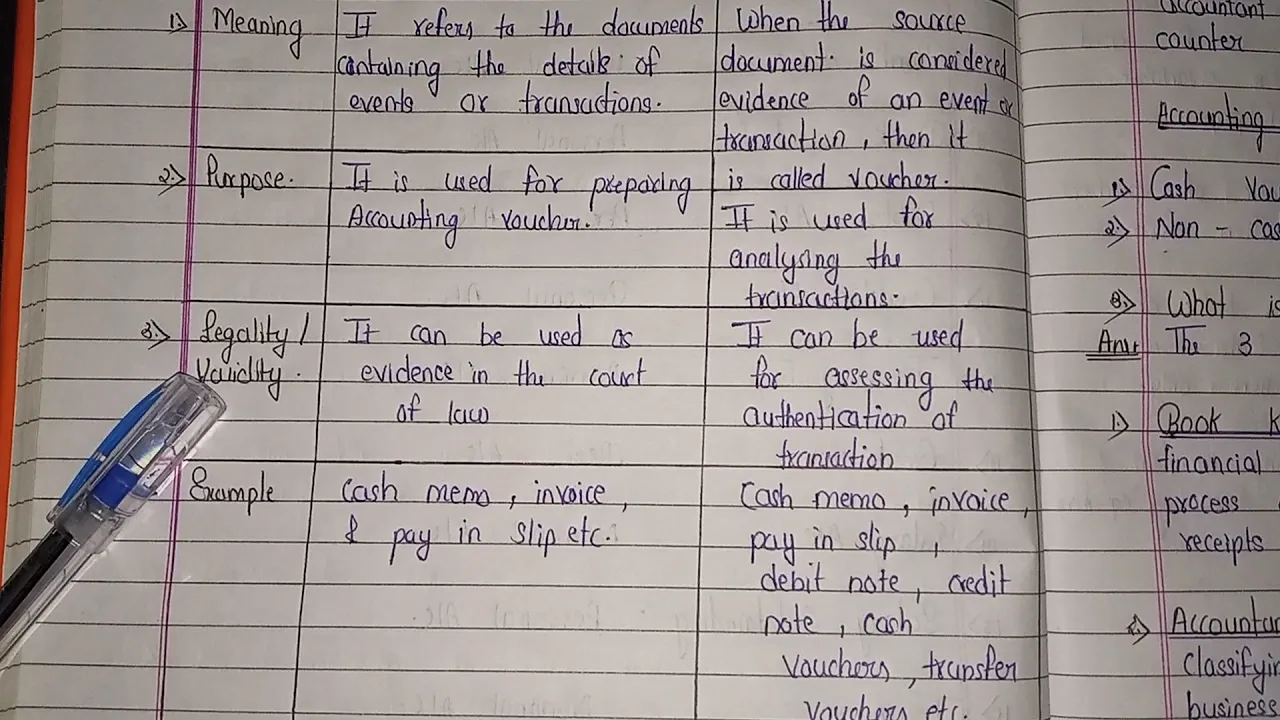 1.) Meaning
It refers to the documents
containing the details of
events or transactions.
When the source
document is considered
evidence of an event or
transaction, then it
is called voucher.
2.) Purpose.
It is used for preparing
Accounting voucher.
It is used for
analysing the
transactions.
3.) Legality /
Validity.
It can be used as
evidence in the court
of law
It can be used
for assessing the
authentication of
transaction
Example
Cash memo, invoice,
& pay in slip etc.
Cash memo, invoice,
pay in slip,
debit note, credit
note, cash
vouchers, transfer
vouchers etc.
Accountant
counter
Accounting
1.) Cash Vou
2.) Non - cas
8.) What is
Ans: The 3
1.) Book k
financial
process
receipts
2.) Accountan
classifyin
business